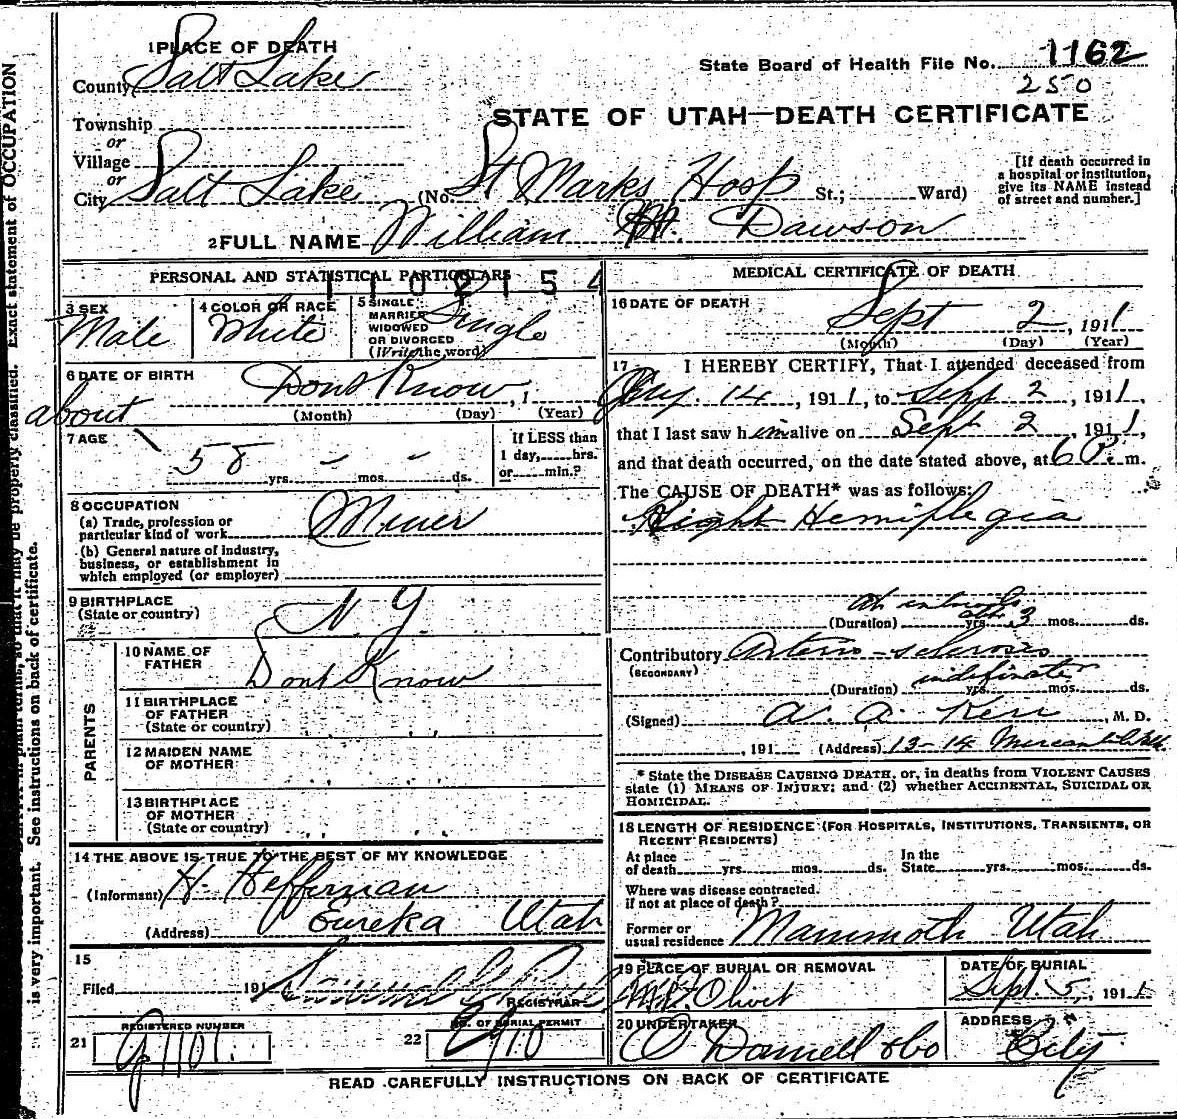 1 PLACE OF DEATH
County Salt Lake
State Board of Health File No. 1162
250
Township
or
Village
or
City Salt Lake (No. St Marks Hosp St.; Ward)
STATE OF UTAH—DEATH CERTIFICATE
[If death occurred in
a hospital or institution,
give its NAME instead
of street and number.]
2 FULL NAME William M. Dawson
PERSONAL AND STATISTICAL PARTICULARS
1102154
3 SEX
Male
4 COLOR OR RACE
White
5 SINGLE
MARRIED
WIDOWED
OR DIVORCED
(Write the word)
Single
6 DATE OF BIRTH
Dont Know, 1
(Month) (Day) (Year)
about
7 AGE
58 - - -
yrs. mos. ds.
If LESS than
1 day, hrs.
or min.?
8 OCCUPATION
(a) Trade, profession or
particular kind of work Miner
(b) General nature of industry,
business, or establishment in
which employed (or employer)
9 BIRTHPLACE
(State or country) N. Y.
PARENTS
10 NAME OF
FATHER Dont Know
11 BIRTHPLACE
OF FATHER
(State or country)
12 MAIDEN NAME
OF MOTHER " "
13 BIRTHPLACE
OF MOTHER
(State or country) " "
14 THE ABOVE IS TRUE TO THE BEST OF MY KNOWLEDGE
(Informant) H. Heffernan
(Address) Eureka Utah
15
Filed 191
REGISTRAR
REGISTERED NUMBER
21
NO. OF BURIAL PERMIT
22
MEDICAL CERTIFICATE OF DEATH
16 DATE OF DEATH
Sept 2, 1911
(Month) (Day) (Year)
17 I HEREBY CERTIFY, That I attended deceased from
14, 1911, to Sept 2, 1911,
that I last saw him alive on Sept 2, 1911,
and that death occurred, on the date stated above, at 6 P. m.
The CAUSE OF DEATH* was as follows:
Right Hemiplegia
(Duration) yrs. 3 mos. ds.
Contributory Arterio-sclerosis
(SECONDARY)
indefinate
(Duration) yrs. mos. ds.
(Signed) A. A. Kerr, M. D.
, 191 (Address) 13-14 Mercantile
* State the DISEASE CAUSING DEATH, or, in deaths from VIOLENT CAUSES
state (1) MEANS OF INJURY; and (2) whether ACCIDENTAL, SUICIDAL OR
HOMICIDAL.
18 LENGTH OF RESIDENCE (FOR HOSPITALS, INSTITUTIONS, TRANSIENTS, OR
RECENT RESIDENTS)
At place
of death yrs. mos. ds.
In the
State yrs. mos. ds.
Where was disease contracted.
if not at place of death?
Former or
usual residence Mammoth Utah
19 PLACE OF BURIAL OR REMOVAL
Mt Olivet
DATE OF BURIAL
Sept. 5, 1911
20 UNDERTAKER
ADDRESS
City
READ CAREFULLY INSTRUCTIONS ON BACK OF CERTIFICATE
so that it may be properly classified. Exact statement of OCCUPATION
is very important. See instructions on back of certificate.